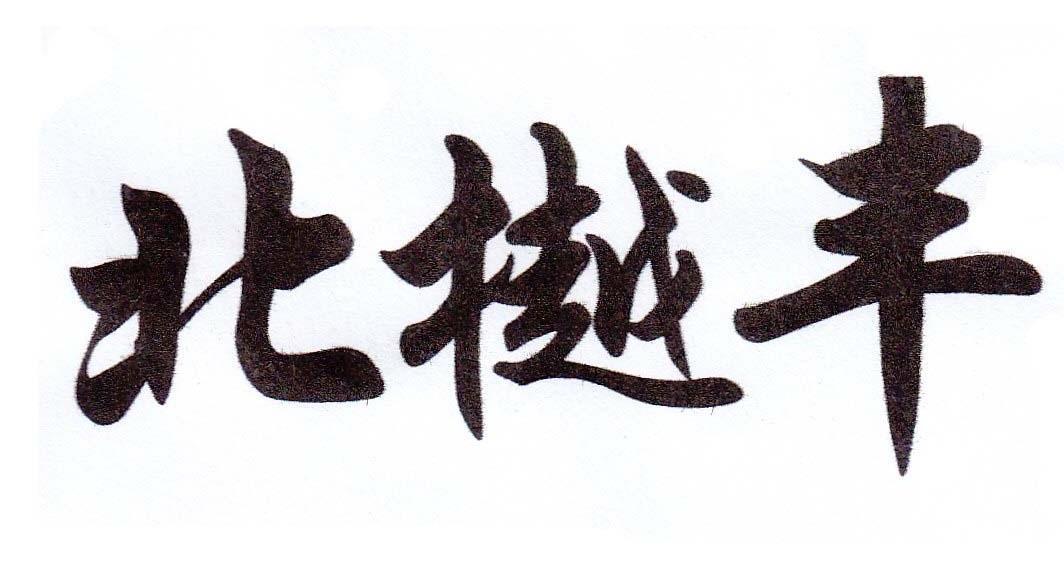 北樾丰